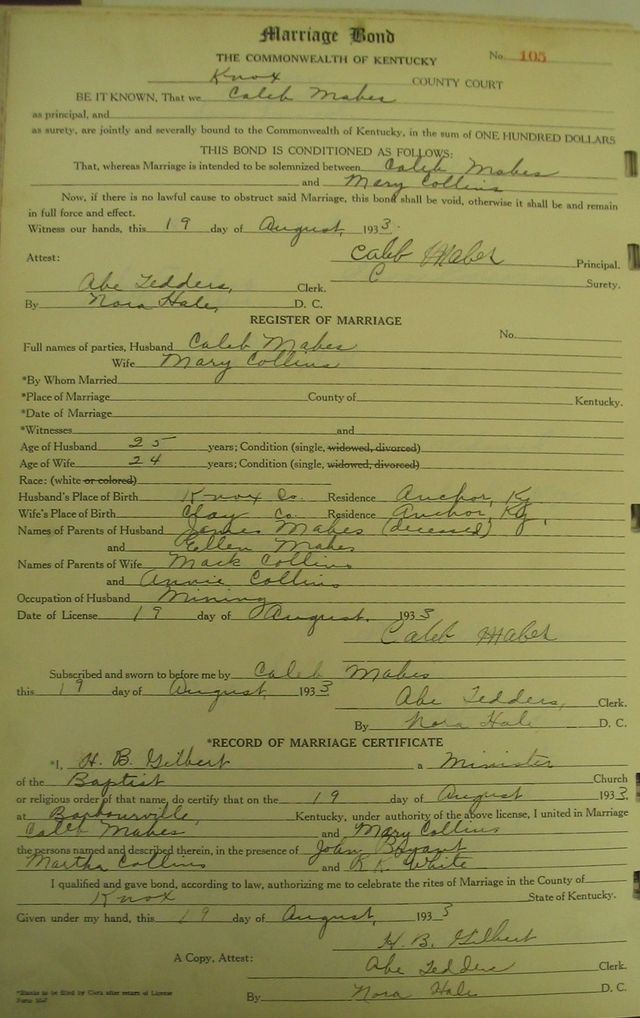 Marriage Bond
THE COMMONWEALTH OF KENTUCKY
No. 105
Knox COUNTY COURT
BE IT KNOWN, That we Caleb Mabes
as principal, and
as surety, are jointly and severally bound to the Commonwealth of Kentucky, in the sum of ONE HUNDRED DOLLARS
THIS BOND IS CONDITIONED AS FOLLOWS:
That, whereas Marriage is intended to be solemnized between Caleb Mabes
and Mary Collins
Now, if there is no lawful cause to obstruct said Marriage, this bond shall be void, otherwise it shall be and remain
in full force and effect.
Witness our hands, this 19 day of August, 1933.
Attest: Caleb Mabes Principal.
C Surety.
Abe Tedders, Clerk.
By Nora Hale, D. C.
REGISTER OF MARRIAGE
No.
Full names of parties, Husband Caleb Mabes
Wife Mary Collins
*By Whom Married
*Place of Marriage County of Kentucky.
*Date of Marriage
*Witnesses and
Age of Husband 25 years; Condition (single, widowed, divorced)
Age of Wife 24 years; Condition (single, widowed, divorced)
Race: (white or colored)
Husband's Place of Birth Knox Co. Residence Anchor, Ky
Wife's Place of Birth Clay Co. Residence Anchor, Ky,
Names of Parents of Husband James Mabes (deceased)
and Ellen Mabes
Names of Parents of Wife Mack Collins
and Annie Collins
Occupation of Husband Mining
Date of License 19 day of August, 1933
Caleb Mabes
Subscribed and sworn to before me by Caleb Mabes
this 19 day of August, 1933
Abe Tedders, Clerk.
By Nora Hale D. C.
*RECORD OF MARRIAGE CERTIFICATE
*I, H. B. Gilbert a Minister
of the Baptist Church
or religious order of that name, do certify that on the 19 day of August 1933
at Barbourville, Kentucky, under authority of the above license, I united in Marriage
Caleb Mabes and Mary Collins
the persons named and described therein, in the presence of John Bryant
Martha Collins and R. K. White
I qualified and gave bond, according to law, authorizing me to celebrate the rites of Marriage in the County of
Knox State of Kentucky.
Given under my hand, this 19 day of August, 1933
H. B. Gilbert
A Copy, Attest: Abe Tedders Clerk.
By Nora Hale D. C.
*Blanks to be filled by Clerk after return of License